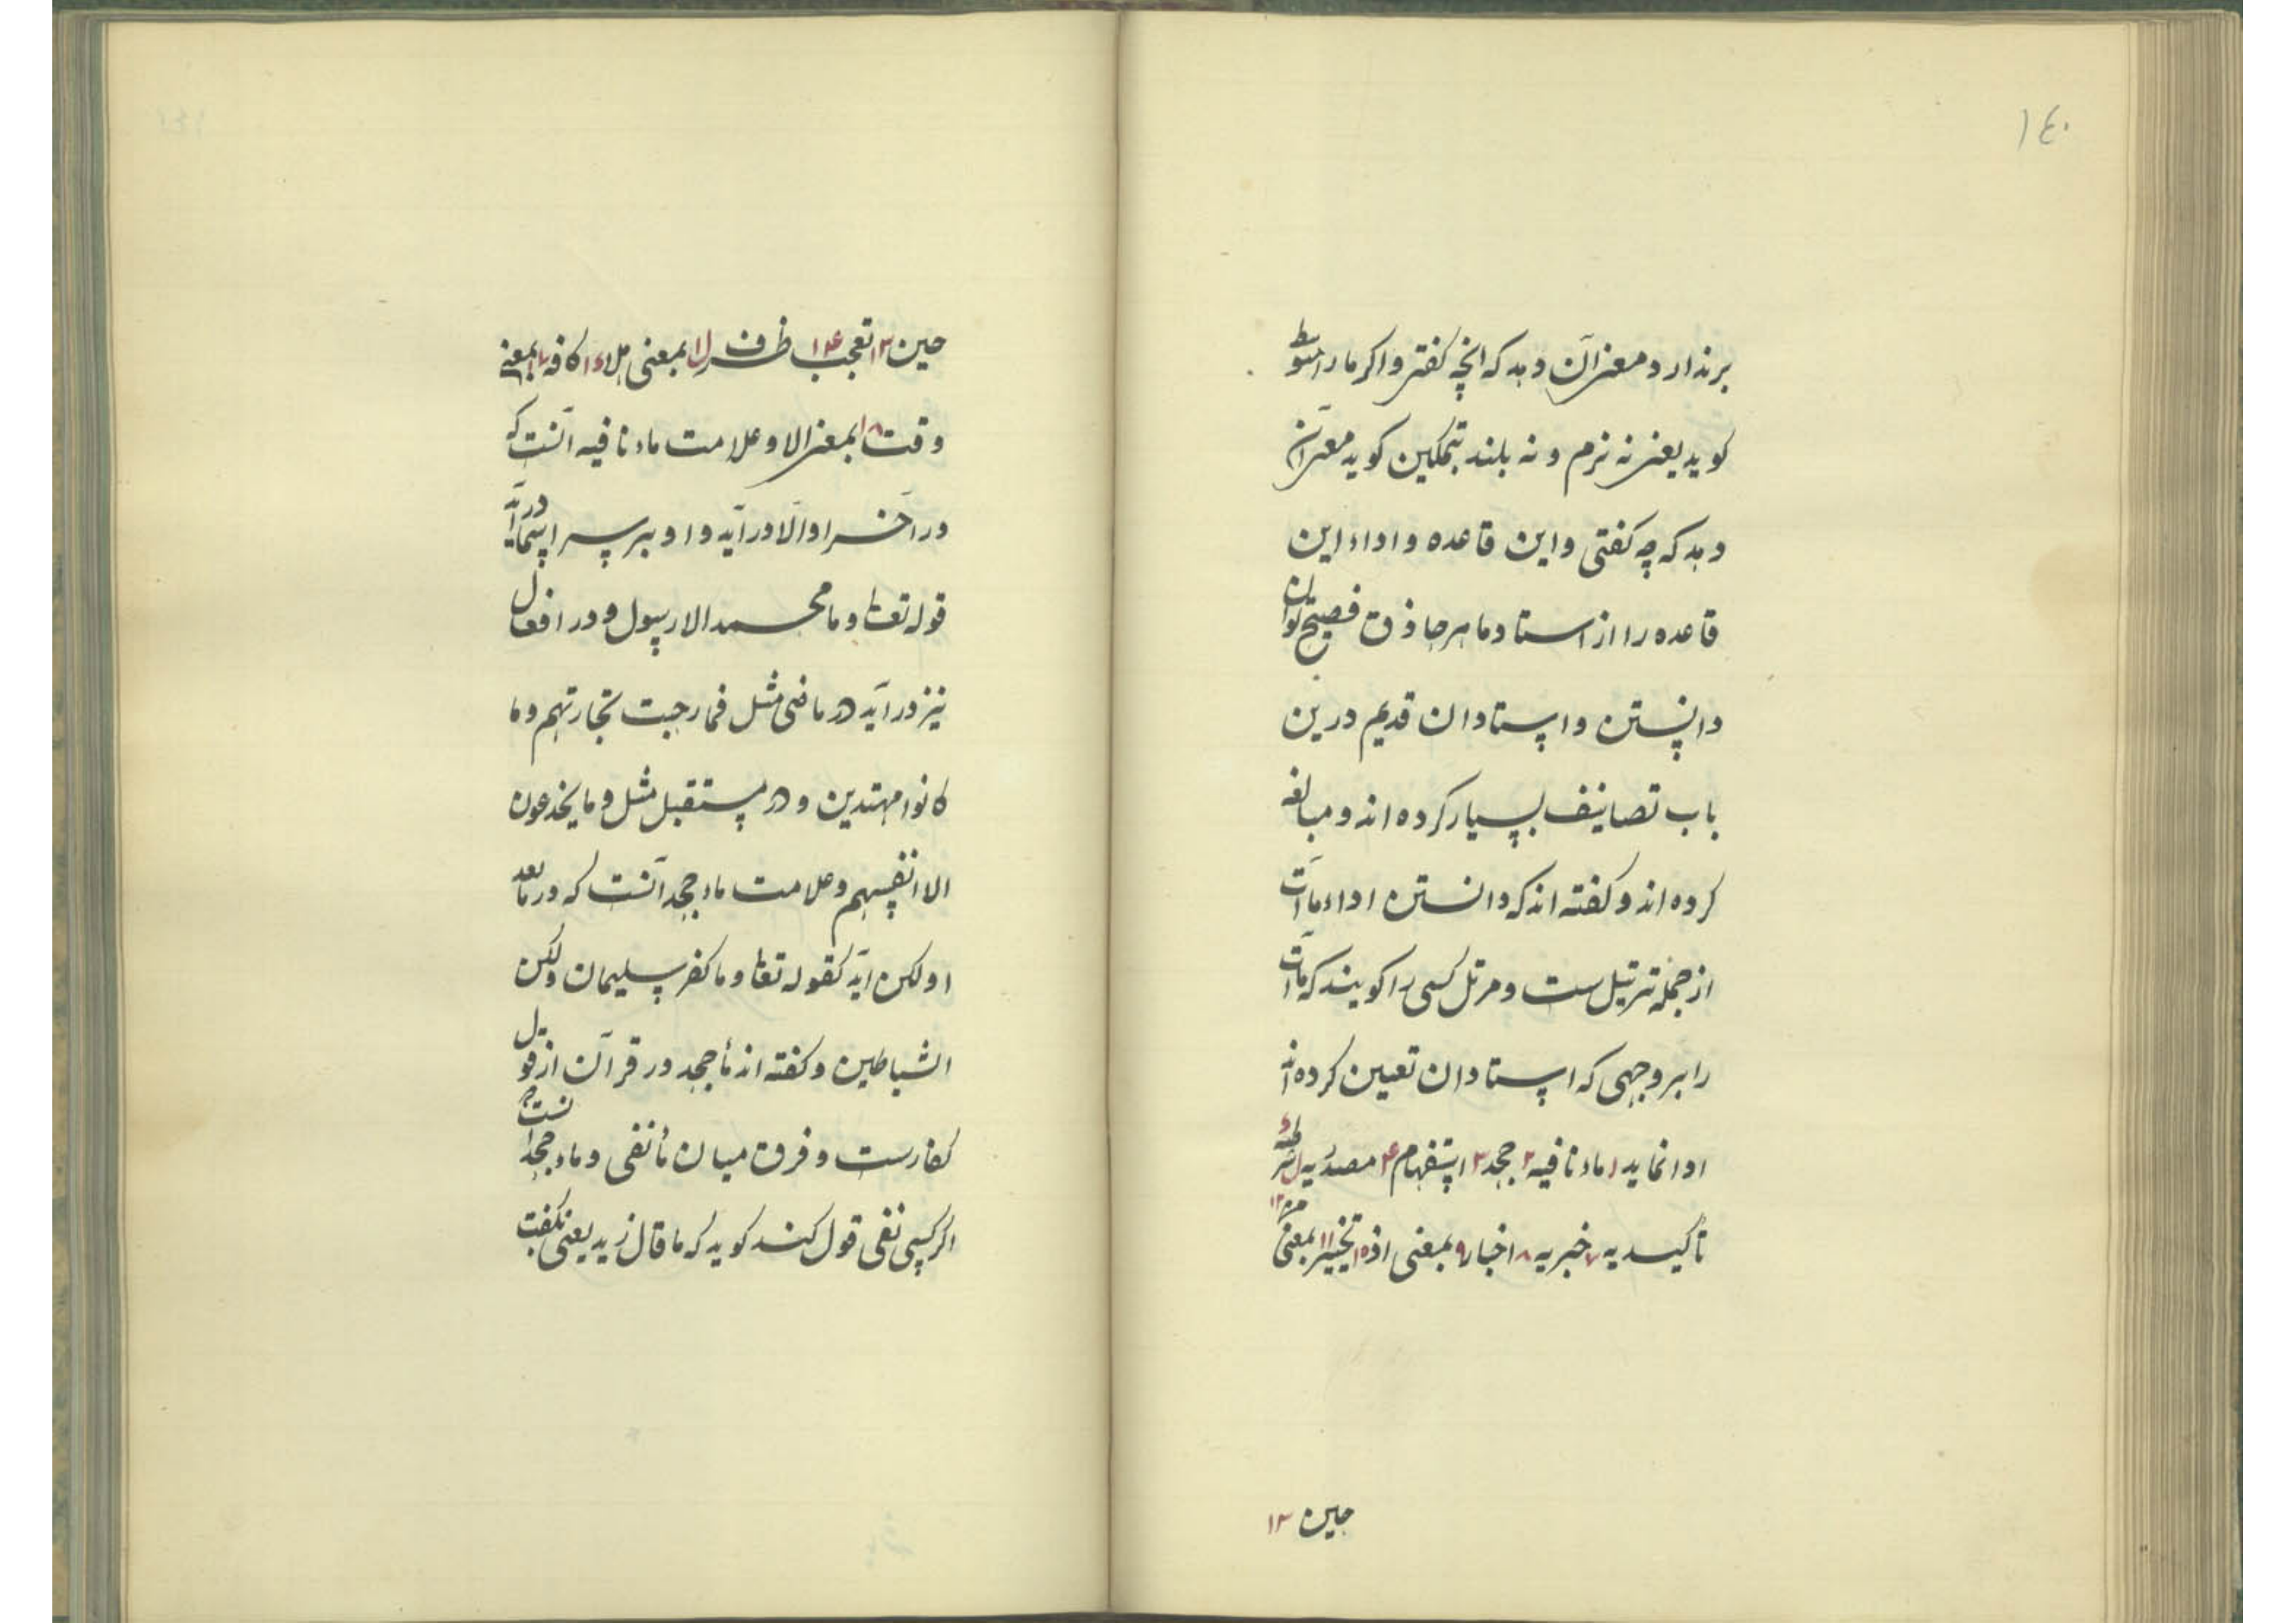 ١٤٠
برندارد و معنی آن دهد که انچه کفتی و اکر ما را متوسط
کوید یعنی نه نرم و نه بلند بتمکین کوید معنی آن
دهد که چه کفتی و این قاعده و اداء این
قاعده را از استاد ماهر حاذق فصیح توان
دانستن و استادان قدیم درین
باب تصانیف بسیار کرده اند و مبالغه
کرده اند و کفته اند که دانستن اداء ماآت
از جمله ترتیل ست و مرتل کسی را کویند که ماآت
را بر وجهی که استادان تعیین کرده اند
ادا نماید ١ ماء نافیه ٢ جحد ٣ استفهام ۴ مصدریه شرطیه
تأکیدیه ٧ خبریه ٨ اخبار ٩ بمعنی اذ ١٠ تخییر ١١ بمعنی من ١٢
حین ١٣
حین ١٣ تعجب ١۴ ظرف ١٥ بمعنی هلا ١٦ کافه ١٧ بمعنی
وقت ١٨ بمعنی الا و علامت ماء نافیه آنست که
در آخر او الا درآید و او بر سر اسما درآید
قوله تعا و ما محمد الا رسول و در افعال
نیز درآید در ماضی مثل فما ربحت تجارتهم و ما
کانوا مهتدین و در مستقبل مثل و ما یخدعون
الا انفسهم و علامت ماء جحد آنست که در مابعد
او لکن آید کقوله تعا و ما کفر سلیمان ولکن
الشیاطین و کفته اند ما جحد در قرآن از قول
کفارست و فرق میان ما نفی و ماء جحد آنست که
اکر کسی نفی قول کند کوید که ما قال زید یعنی نکفت